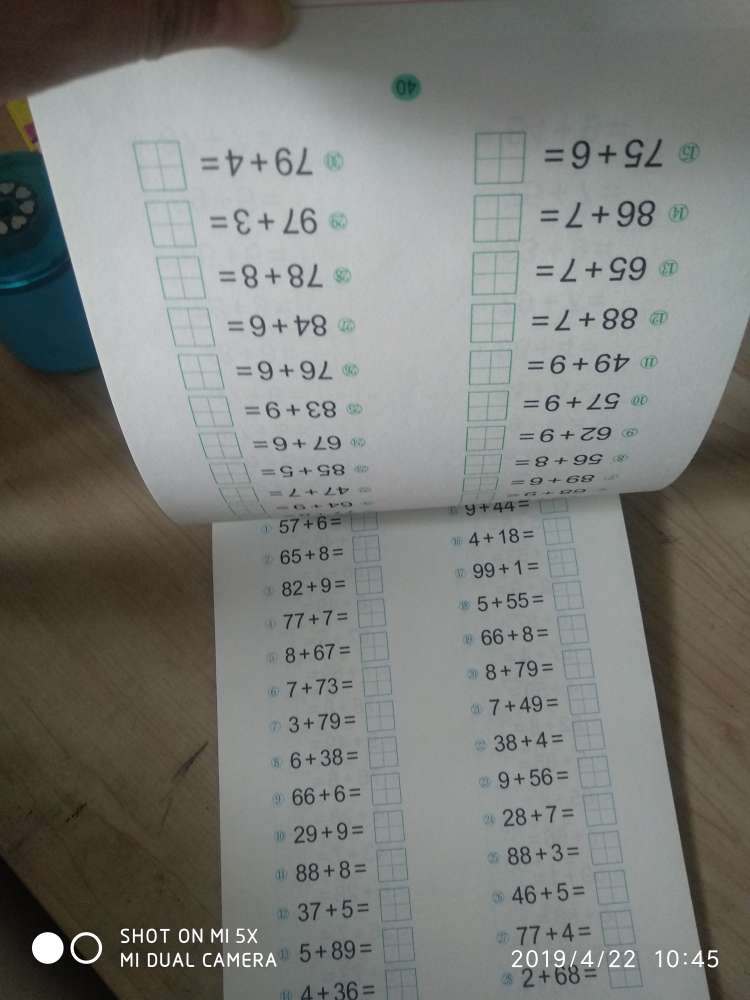 40
⑮ 75+6=
⑭ 86+7=
⑬ 65+7=
⑫ 88+7=
⑪ 49+9=
⑩ 57+9=
⑨ 62+9=
⑧ 56+8=
89+6=
㉚ 79+4=
㉙ 97+3=
㉘ 78+8=
㉗ 84+6=
㉖ 76+6=
㉕ 83+9=
㉔ 67+6=
㉓ 85+5=
47+7=
64+9=
① 57+6=
② 65+8=
③ 82+9=
④ 77+7=
⑤ 8+67=
⑥ 7+73=
⑦ 3+79=
⑧ 6+38=
⑨ 66+6=
⑩ 29+9=
⑪ 88+8=
⑫ 37+5=
⑬ 5+89=
⑭ 4+36=
⑮ 9+44=
⑯ 4+18=
⑰ 99+1=
⑱ 5+55=
⑲ 66+8=
⑳ 8+79=
㉑ 7+49=
㉒ 38+4=
㉓ 9+56=
㉔ 28+7=
㉕ 88+3=
㉖ 46+5=
㉗ 77+4=
㉘ 2+68=
SHOT ON MI 5X
MI DUAL CAMERA
2019/4/22 10:45